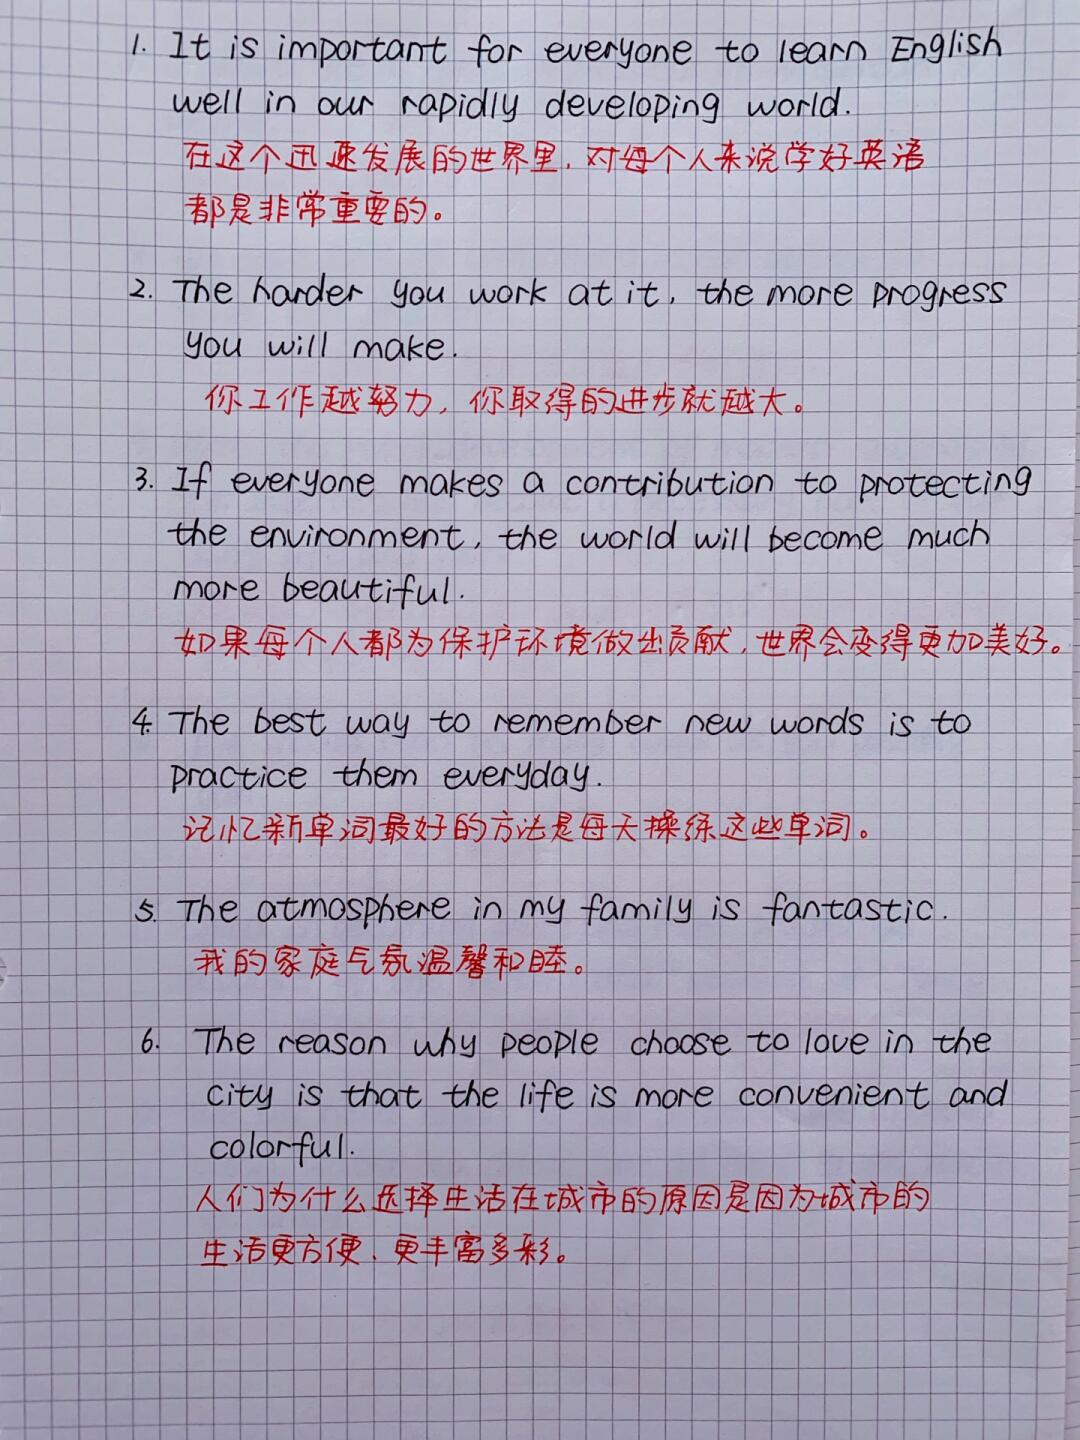 1. It is important for everyone to learn English
well in our rapidly developing world.
在这个迅速发展的世界里，对每个人来说学好英语
都是非常重要的。
2. The harder you work at it, the more progress
you will make.
你工作越努力，你取得的进步就越大。
3. If everyone makes a contribution to protecting
the environment, the world will become much
more beautiful.
如果每个人都为保护环境做出贡献，世界会变得更加美好。
4. The best way to remember new words is to
practice them everyday.
记忆新单词最好的方法是每天操练这些单词。
5. The atmosphere in my family is fantastic.
我的家庭气氛温馨和睦。
6. The reason why people choose to love in the
city is that the life is more convenient and
colorful.
人们为什么选择生活在城市的原因是因为城市的
生活更方便，更丰富多彩。